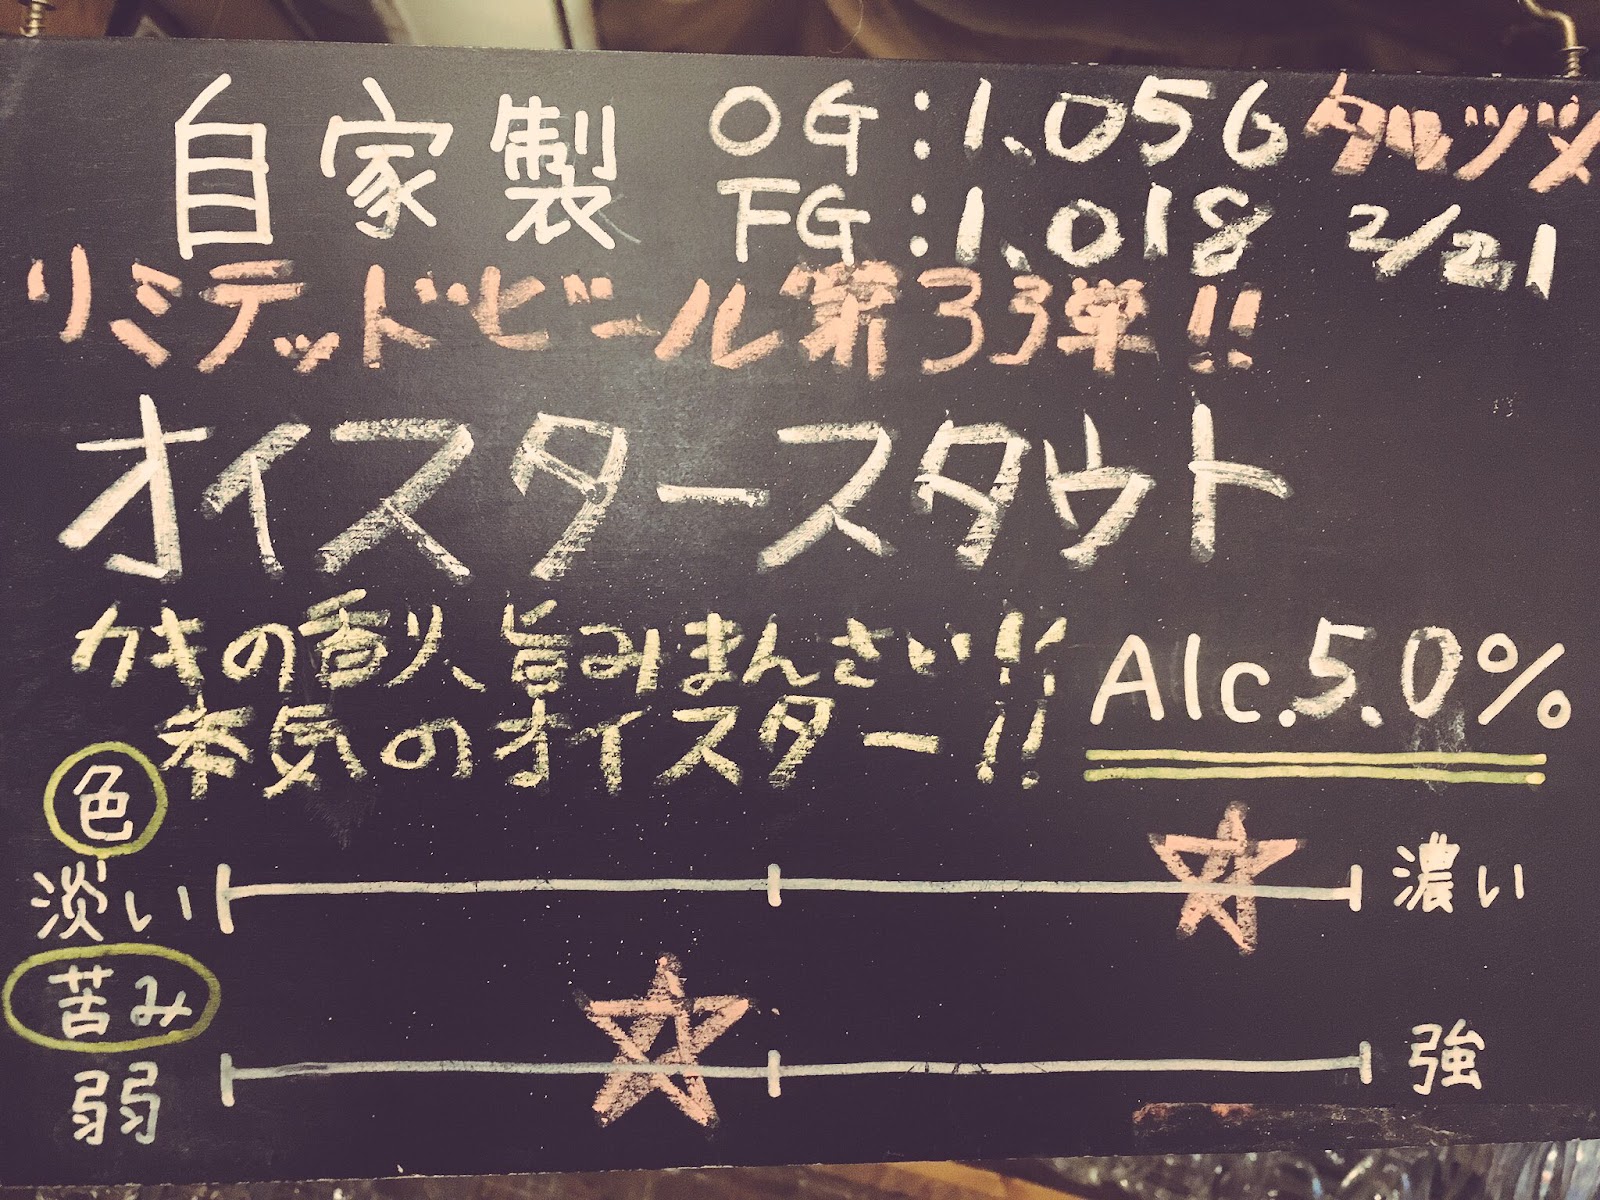 自家製 OG:1.056 タルヅメ
FG:1.018 2/21
リミテッドビール第33弾!!
オイスタースタウト
カキの香り、旨みまんさい!!
本気のオイスター!! Alc.5.0%
色
淡い 濃い
苦み
弱 強